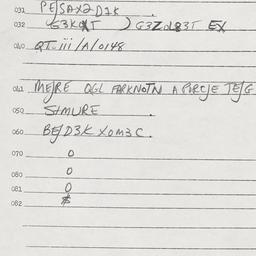 031 PE/SAX2D1K
032 G3KQXT ) G3Z2L83T EX
040 QT-iii/A/0148
041 ME/RE OGL FARKNOTN A PURC/E TE/G
050 S1MURE.
060 BE/D3K XOM3C.
070 0
080 0
081 0
082 $